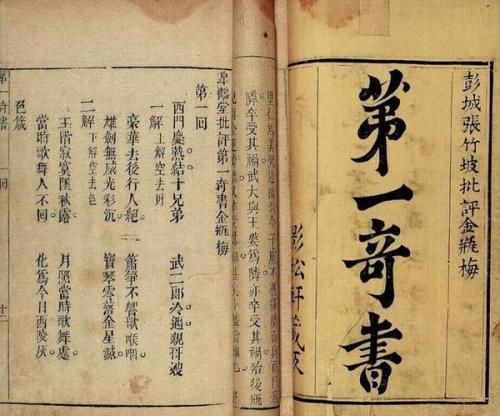 彭城張竹坡批評金瓶梅
苐一奇書
影松軒藏板
鄰卒受其禍武大與王婆為鄰亦卒受其禍殆後瓶
皋鶴堂批評第一奇書金瓶梅
第一回
西門慶熱結十兄弟 武二郎冷遇親哥嫂
一解 上解空去財
豪華去後行人絕 簫箏不響歌喉咽
雄劍無威光彩沉 寶琴零落金星滅
二解 下解空去色
玉階寂寞墜秋露 月照當時歌舞處
當時歌舞人不回 化為今日西陵灰
色箴
第一奇書 一回 十二